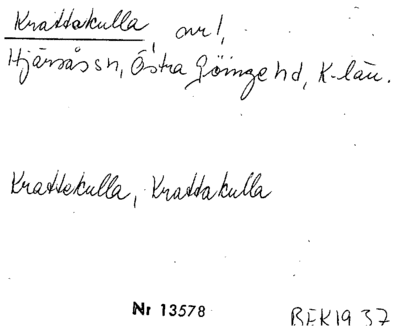 Krattakulla nr 1,
Hjärsås sn, Östra Göinge hd, K-län.
Krattekulla, Krattakulla
Nr 13578
BEK 19 37